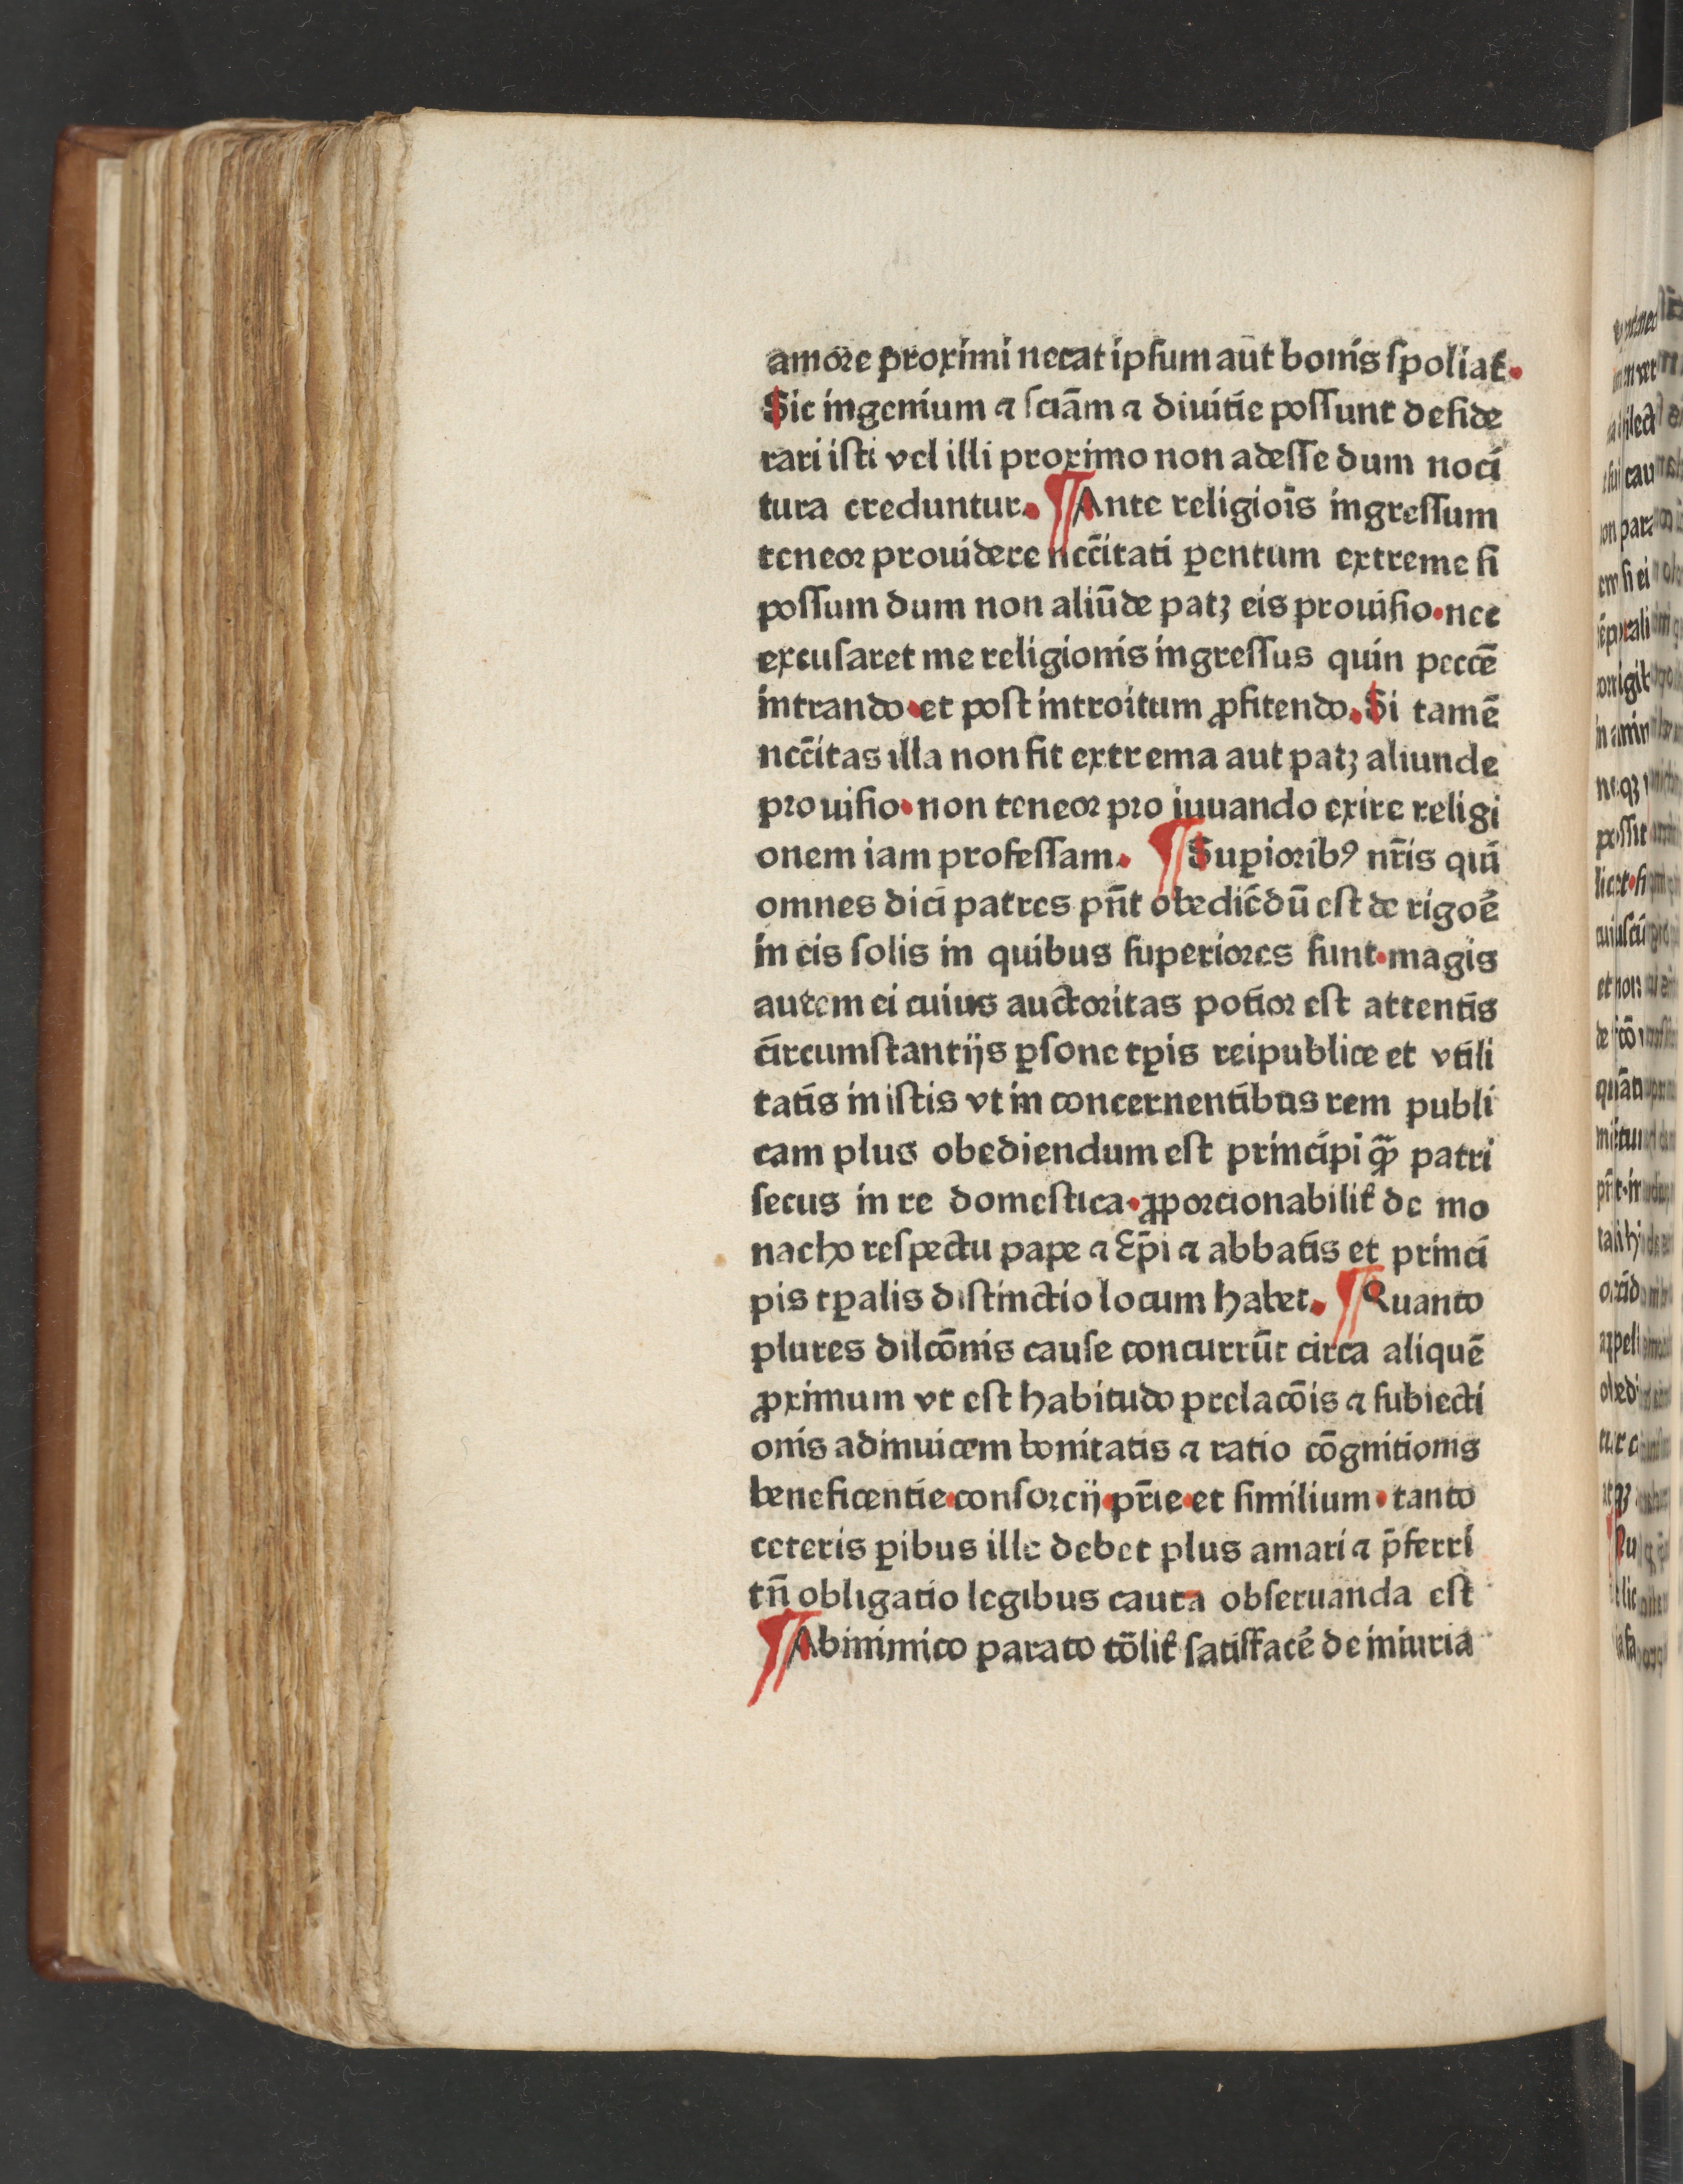 amore proximi necat ipsum aūt bonis spoliat̛.
Sic ingenium ⁊ sciām ⁊ diuitie possunt deside
rari isti vel illi proximo non adesse dum noci
tura creduntur. ¶ Ante religiois̄ ingressum
teneor prouidere nec̄citati ꝑentum extreme si
possum dum non aliūde patꝫ eis prouisio·nec
excusaret me religionis ingressus quin peccē
intrando·et post introitum ꝓfitendo. Si tamē
nec̄citas illa non sit extrema aut patꝫ aliunde
prouisio·non teneor pro iuuando exire religi
onem iam professam. ¶ Suꝑioribꝰ nr̄is qui
omnes dici patres pn̄t obediēdū est de rigoē
in eis solis in quibus superiores sunt·magis
autem ei cuius auctoritas potior est attentis
circumstantijs ꝑsone tꝑis reipublice et vtili
tatis in istis vt in concernentibus rem publi
cam plus obediendum est principi qꝫ̄ patri
secus in re domestica·ꝓporcionabilit̛ de mo
nacho respectu pape ⁊ Ep̄i ⁊ abbatis et princi
pis tꝑalis distinctio locum habet. ¶ Quanto
plures dilcōnis cause concurrūt circa aliquē
ꝓximum vt est habitudo prelacōis ⁊ subiecti
onis adinuicem bonitatis ⁊ ratio cōgnitionis
beneficentie·consorcij·pr̄ie·et similium·tanto
ceteris ꝑibus ille debet plus amari ⁊ p̄ferri
tn̄ obligatio legibus cauta obseruanda est
¶ Ab inimico parato tōlit̛ satisfacē de iniuria